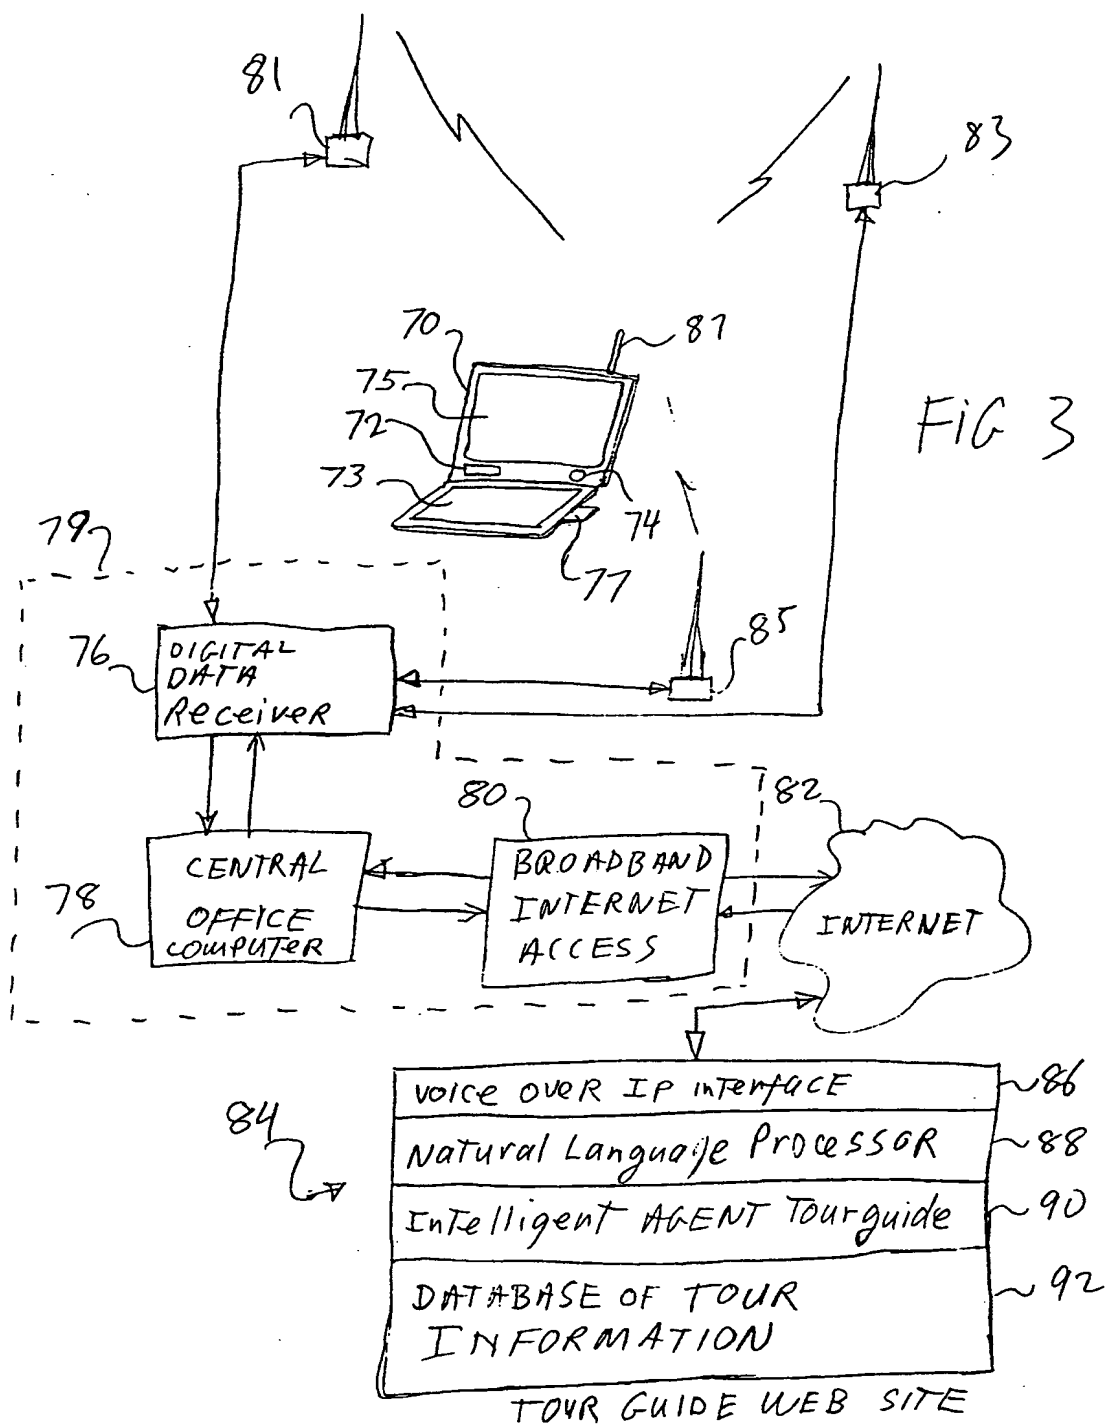 81
83
70
87
75
72
73
74
77
FIG 3
79
76
DIGITAL
DATA
Receiver
85
80
82
78
CENTRAL
OFFICE
COMPUTER
BROADBAND
INTERNET
ACCESS
INTERNET
84
Voice OVER IP interface
86
Natural Language Processor
88
Intelligent AGENT Tourguide
90
DATABASE OF TOUR
INFORMATION
92
TOUR GUIDE WEB SITE